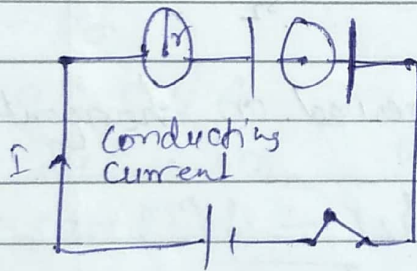 r
Conducting
I Current